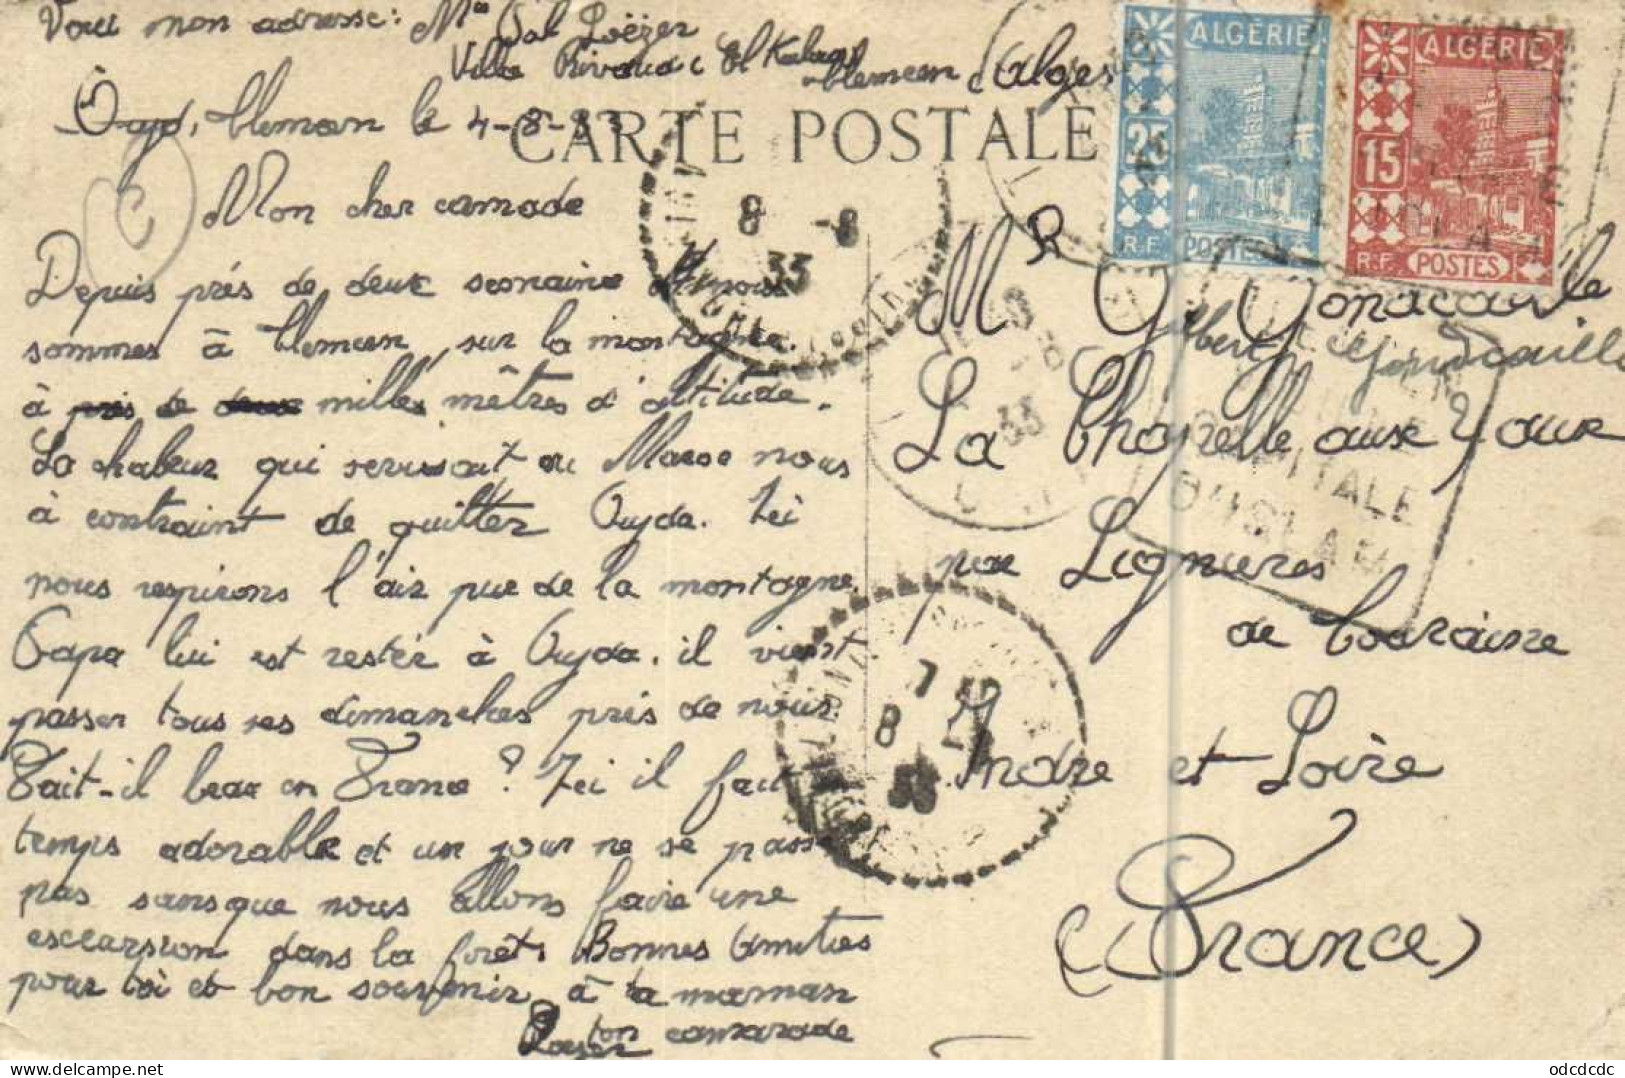 Voici mon adresse: Mr
Villa Rivaud
Tlemcen Alger
Oujd, tlemcen le 4-8-33
CARTE POSTALE
Mon cher camade
Depuis prés de deux semaine nous
sommes à tlemcen, sur la montagne.
à près de deux milles mêtres d'altitude.
La chaleur qui sevissait au Maroc nous
à contraint de quitter Oujda. Ici
nous respirons l'air pur de la montagne.
Papa lui est restér à Oujda. il vient
passer tous ses dimanches près de nous.
Fait-il beau en France? Ici il fait
temps adorable et un jour ne se passe
pas sans que nous allons faire une
excursion dans la forêt. Bonnes Amities
pour toi et bon souvenir à ta maman
ton camarade
Roger
ALGÉRIE
25
R.F. POSTES
ALGÉRIE
15
R.F. POSTES
8 -8
33
33
7
8
33
CAPITALE
DE L'ISLAM
Mr G. Gondcaille
Albert Gondcaille
La Chapelle aux Naux
par Lignieres
de touraine
Indre et Loire
(France)
odcdcdc